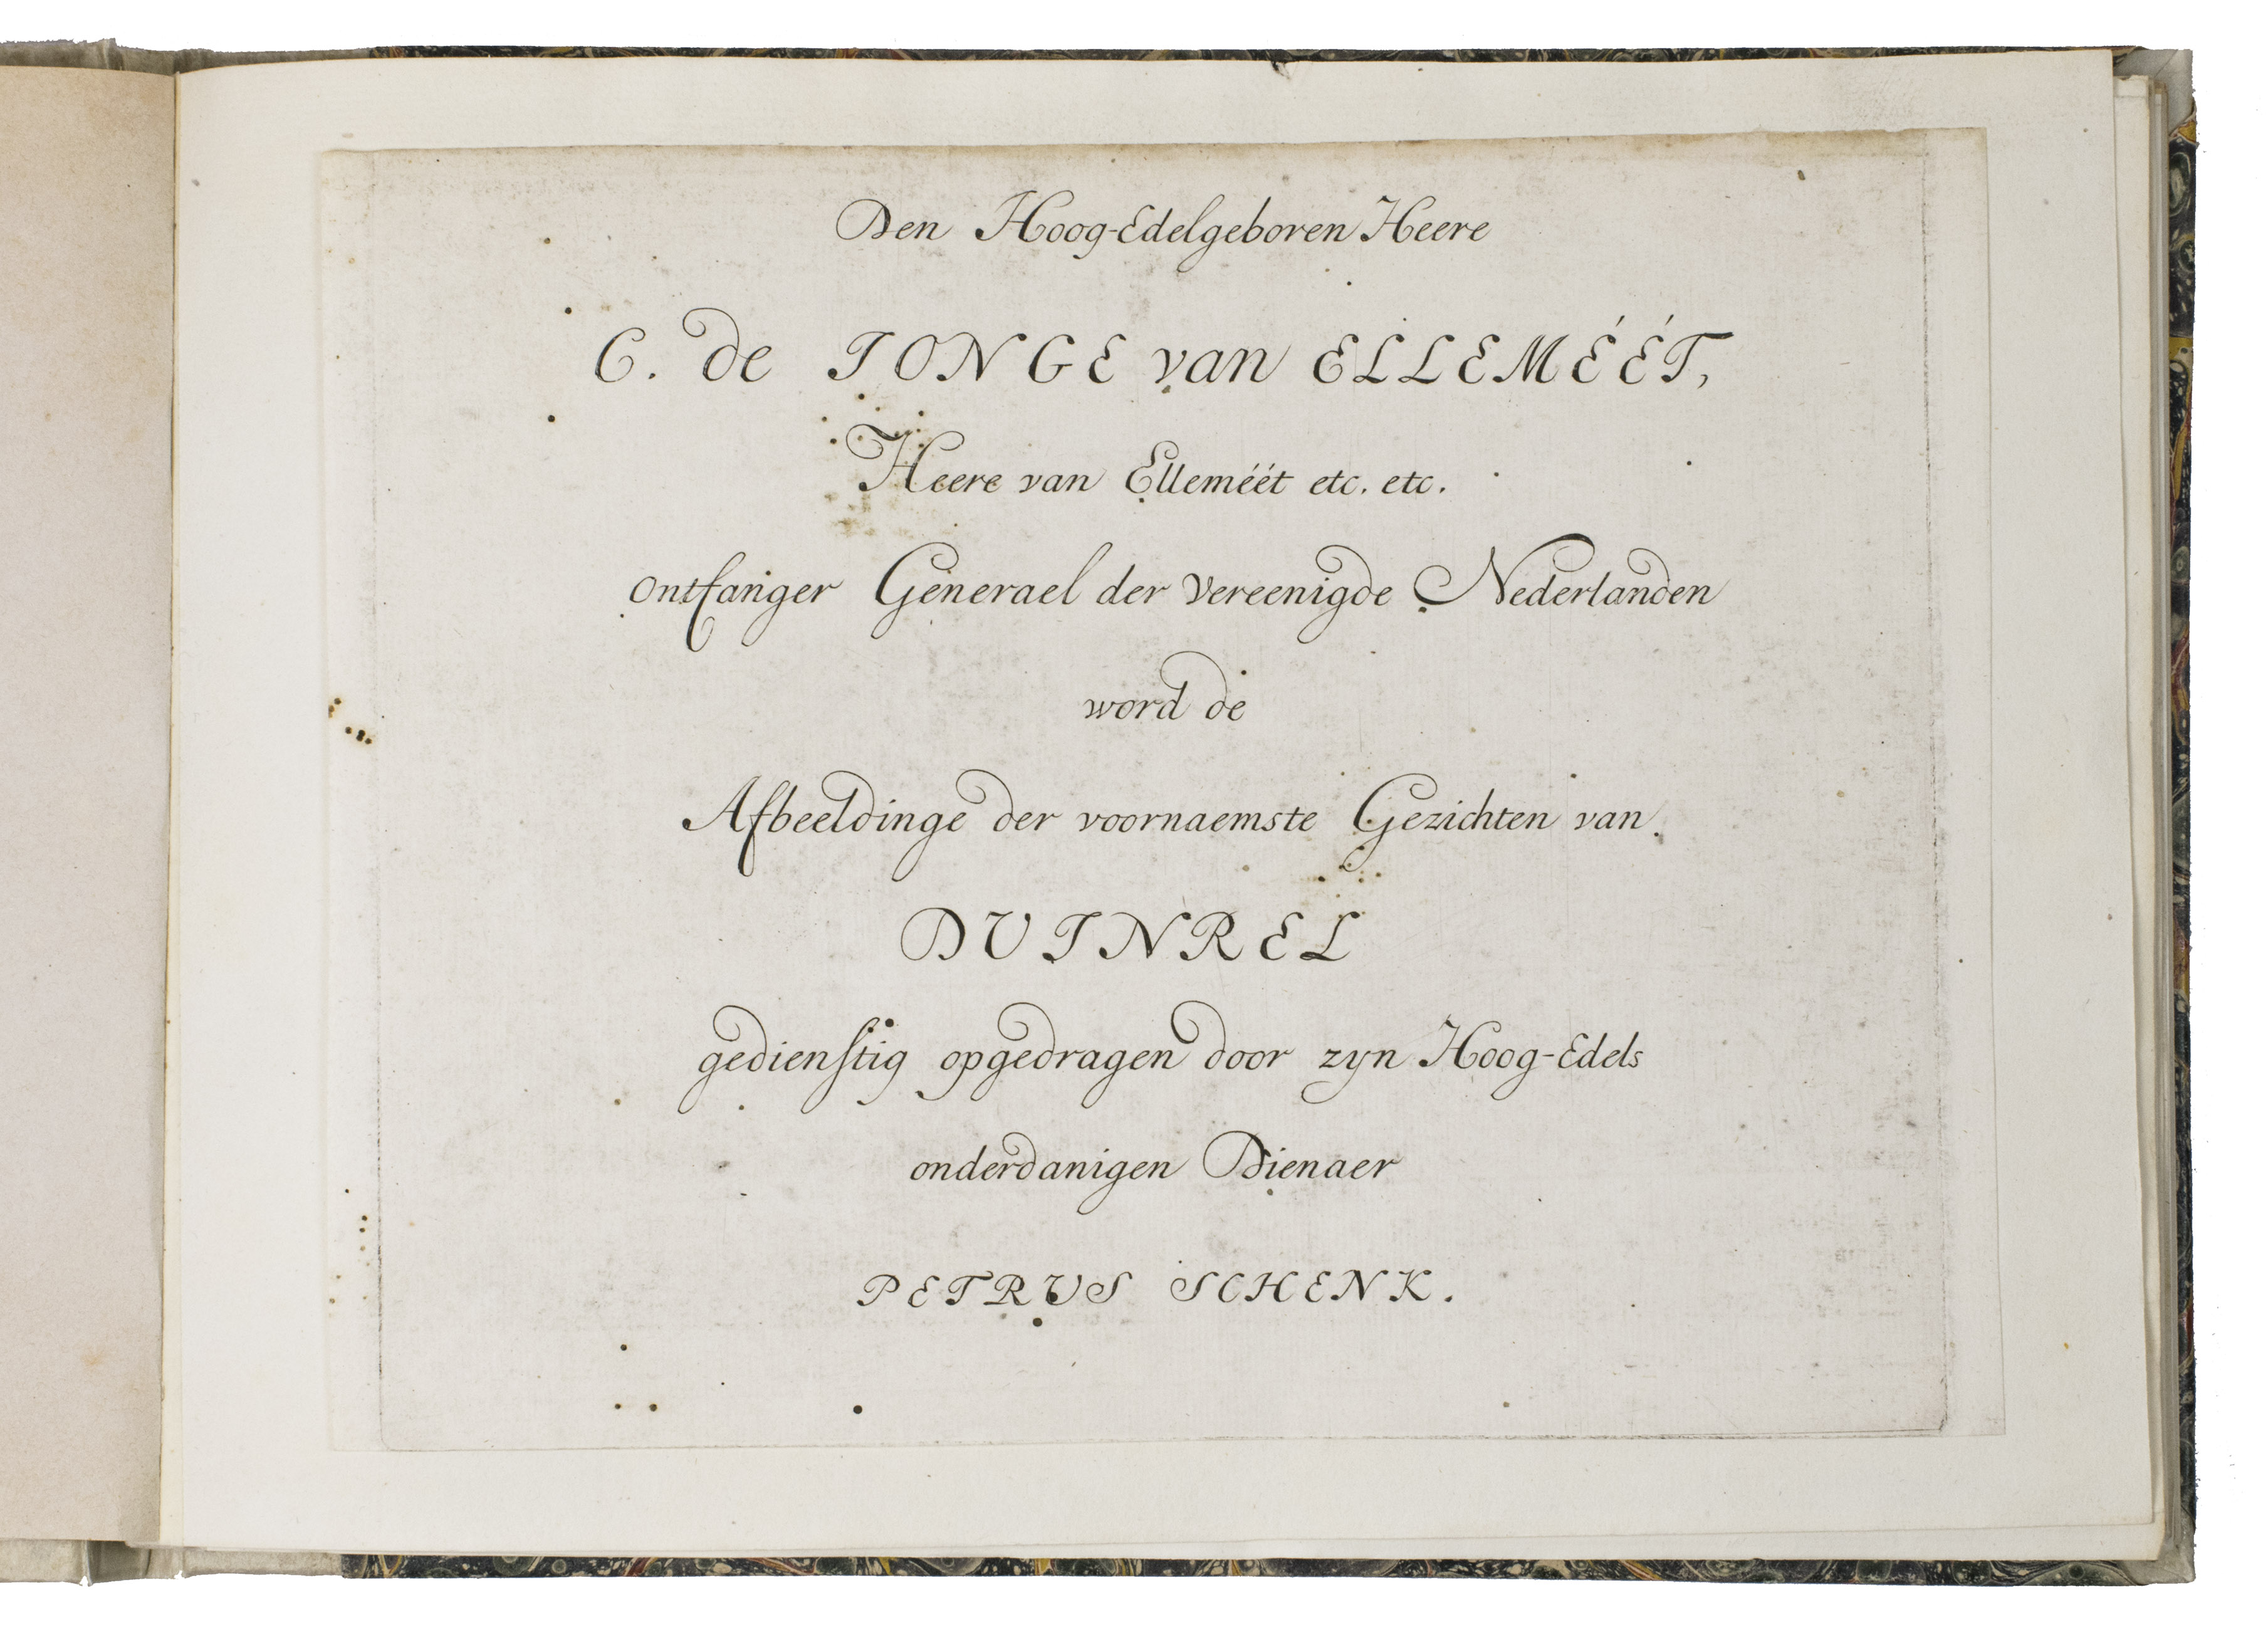 Den Hoog-Edelgeboren Heere
C. de IONGE van ELLEMÉÉT,
Heere van Elleméét etc. etc.
Ontfanger Generael der Vereenigde Nederlanden
word de
Afbeeldinge der voornaemste Gezichten van
DVINREL
gedienstig opgedragen door zyn Hoog-Edels
onderdanigen Dienaer
PETRUS SCHENK.